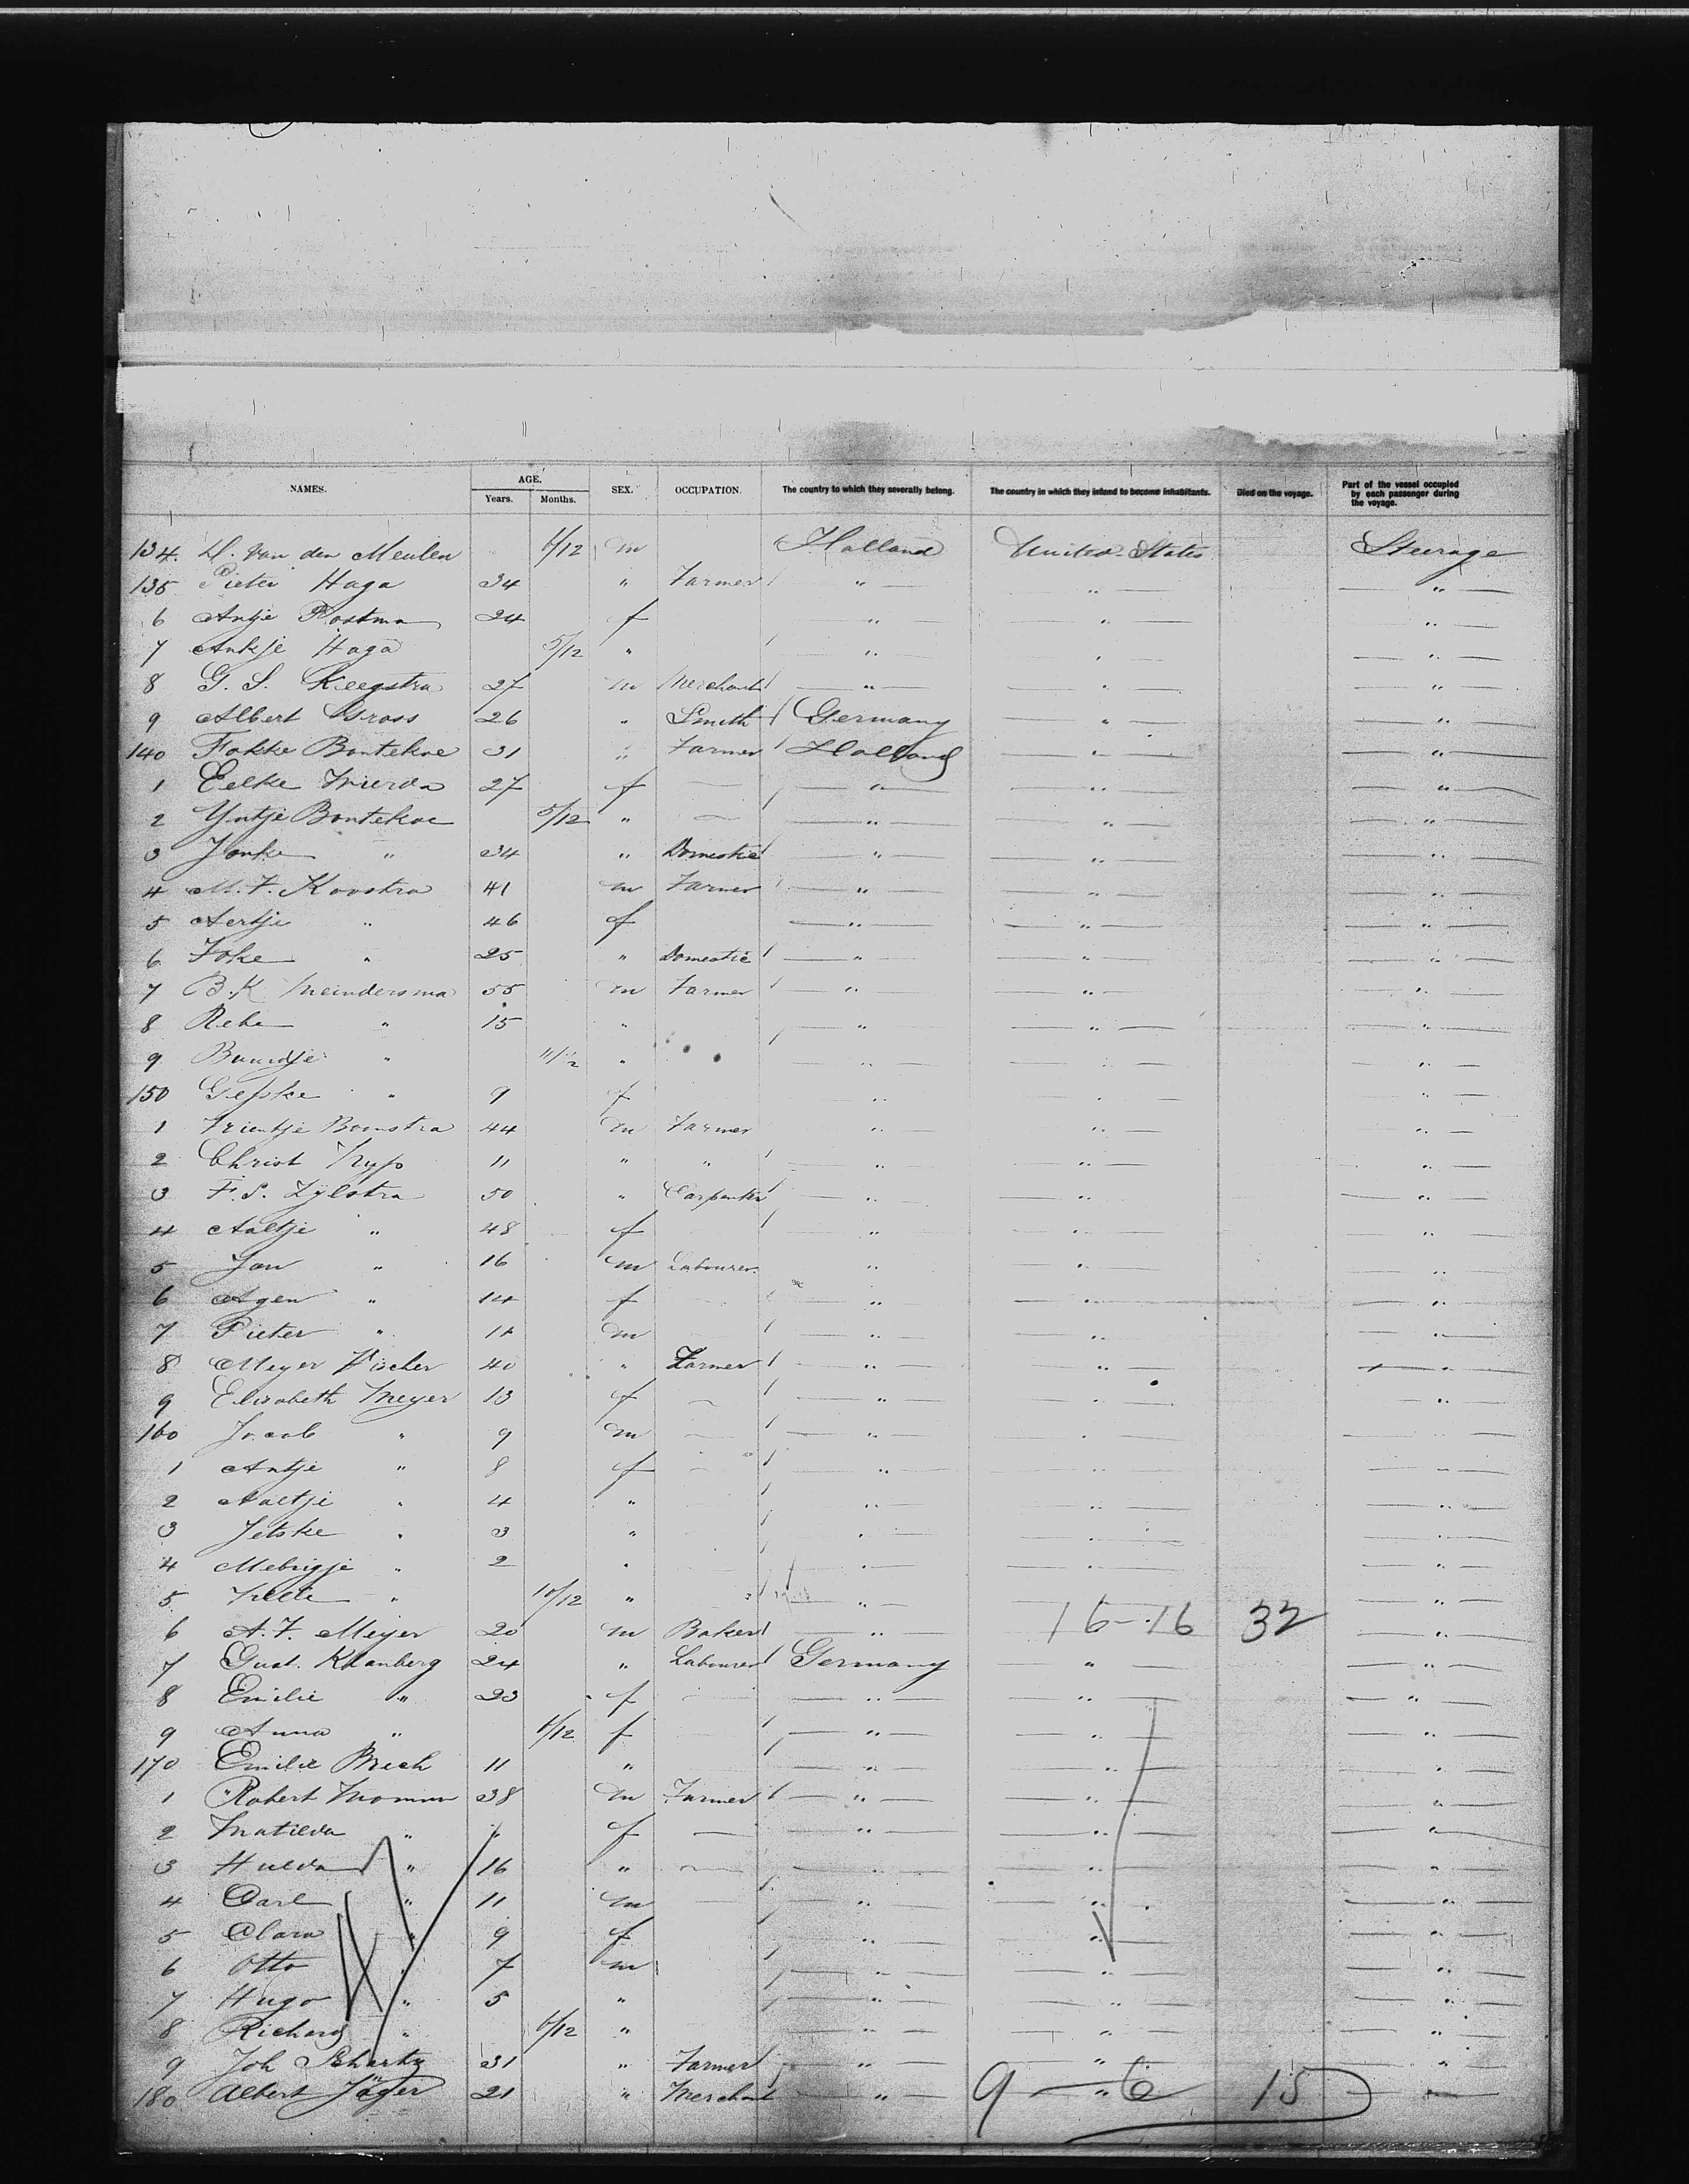 NAMES. AGE. Years. Months. SEX. OCCUPATION. The country to which they severally belong. The country in which they intend to become inhabitants. Died on the voyage. Part of the vessel occupied by each passenger during the voyage.
134. D. Van den Meulen 6/12 m Holland United States Steerage
135 Pieter Haga 34 " Farmer " " "
6 Antje Postma 24 f " " "
7 Ankje Haga 5/12 " " " "
8 G. S. Keegstra 27 m Merchant " " "
9 Albert Gross 26 " Smith Germany " "
140 Fokke Bontekoe 31 " Farmer Holland " "
1 Eelke Wierda 27 f " " "
2 Yntje Bontekoe 5/12 " " " "
3 Jonke " 34 " Domestic " " "
4 M. F. Koostra 41 m Farmer " " "
5 Aertje " 46 f " " "
6 Foke " 25 " Domestic " " "
7 B. K Meindersma 55 m Farmer " " "
8 " 15 " " " "
9 " 11/12 " " " "
150 Gepke " 9 f " " "
1 Trientje Boonstra 44 m Farmer " " "
2 Christ 11 " " " " "
3 F. S. Zylstra 50 " Carpenter " " "
4 Aaltje " 48 f " " "
5 Jan " 16 m Labourer " " "
6 Agen " 14 f " " "
7 Pieter " m " " "
8 Meyer Fischer 40 " Farmer " " "
9 Elisabeth Meyer 13 f " " "
160 Jacob " 9 m " " "
1 Antje " 8 f " " "
2 Aaltje " 4 " " " "
3 Jetske " 3 " " " "
4 Mebrigje " 2 " " " "
5 " 10/12 " " "
6 A. F. Meyer 20 m Baker " 16-16 32 "
7 Gust. Kranberg 24 " Labourer Germany " "
8 Emilie " 23 f " " "
9 Anna " 6/12 f " " "
170 Emilie Brech 11 " " " "
1 Robert 38 m Farmer " " "
2 Matilda " " f " " "
3 Hulda " 16 " " " "
4 Carl " 11 m " " "
5 Clara " 9 f " " "
6 Otto " 7 m " " "
7 Hugo " 5 " " " "
8 Richard " 6/12 " " " "
9 Joh 31 " Farmer " " "
180 Albert Jäger 21 " Merchant " 9 - " 6 15 "